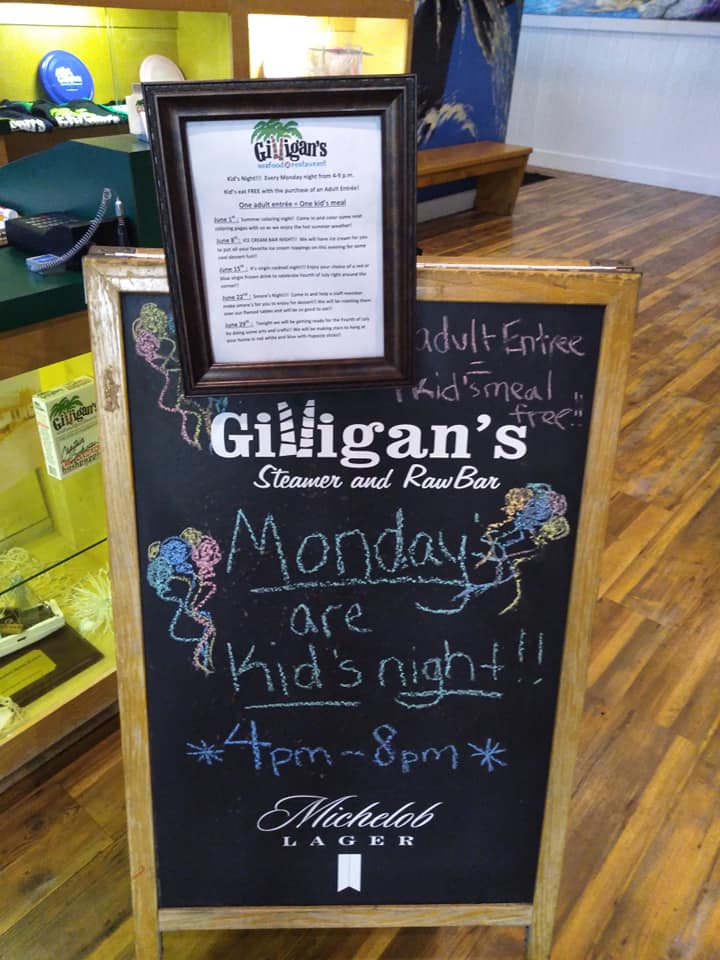 Gilligan's
seafood restaurant
Kid's Night!!! Every Monday night from 4-9 p.m.
Kid's eat FREE with the purchase of an Adult Entrée!
One adult entrée = One kid's meal
June 1st: Summer coloring night! Come in and color some neat
coloring pages with us as we enjoy the hot summer weather!
June 8th: ICE CREAM BAR NIGHT!!! We will have ice cream for you
to put all your favorite ice cream toppings on this evening for some
cool dessert fun!!
June 15th: It's virgin cocktail night!! Enjoy your choice of a red or
blue virgin frozen drink to celebrate Fourth of July right around the
corner!!
June 22nd: Smore's Night!!! Come in and help a staff member
make smore's for you to enjoy for dessert!! We will be roasting them
over our flamed tables and will be so good to eat!!
June 29th: Tonight we will be getting ready for the Fourth of July
by doing some arts and crafts!! We will be making stars to hang at
your home in red white and blue with Popsicle sticks!!
adult Entree
=
1 Kid's meal
free!!
Gilligan's
Steamer and Raw Bar
Monday's
are
Kid's night!!
*4pm-8pm*
Michelob
LAGER
Gilligan's